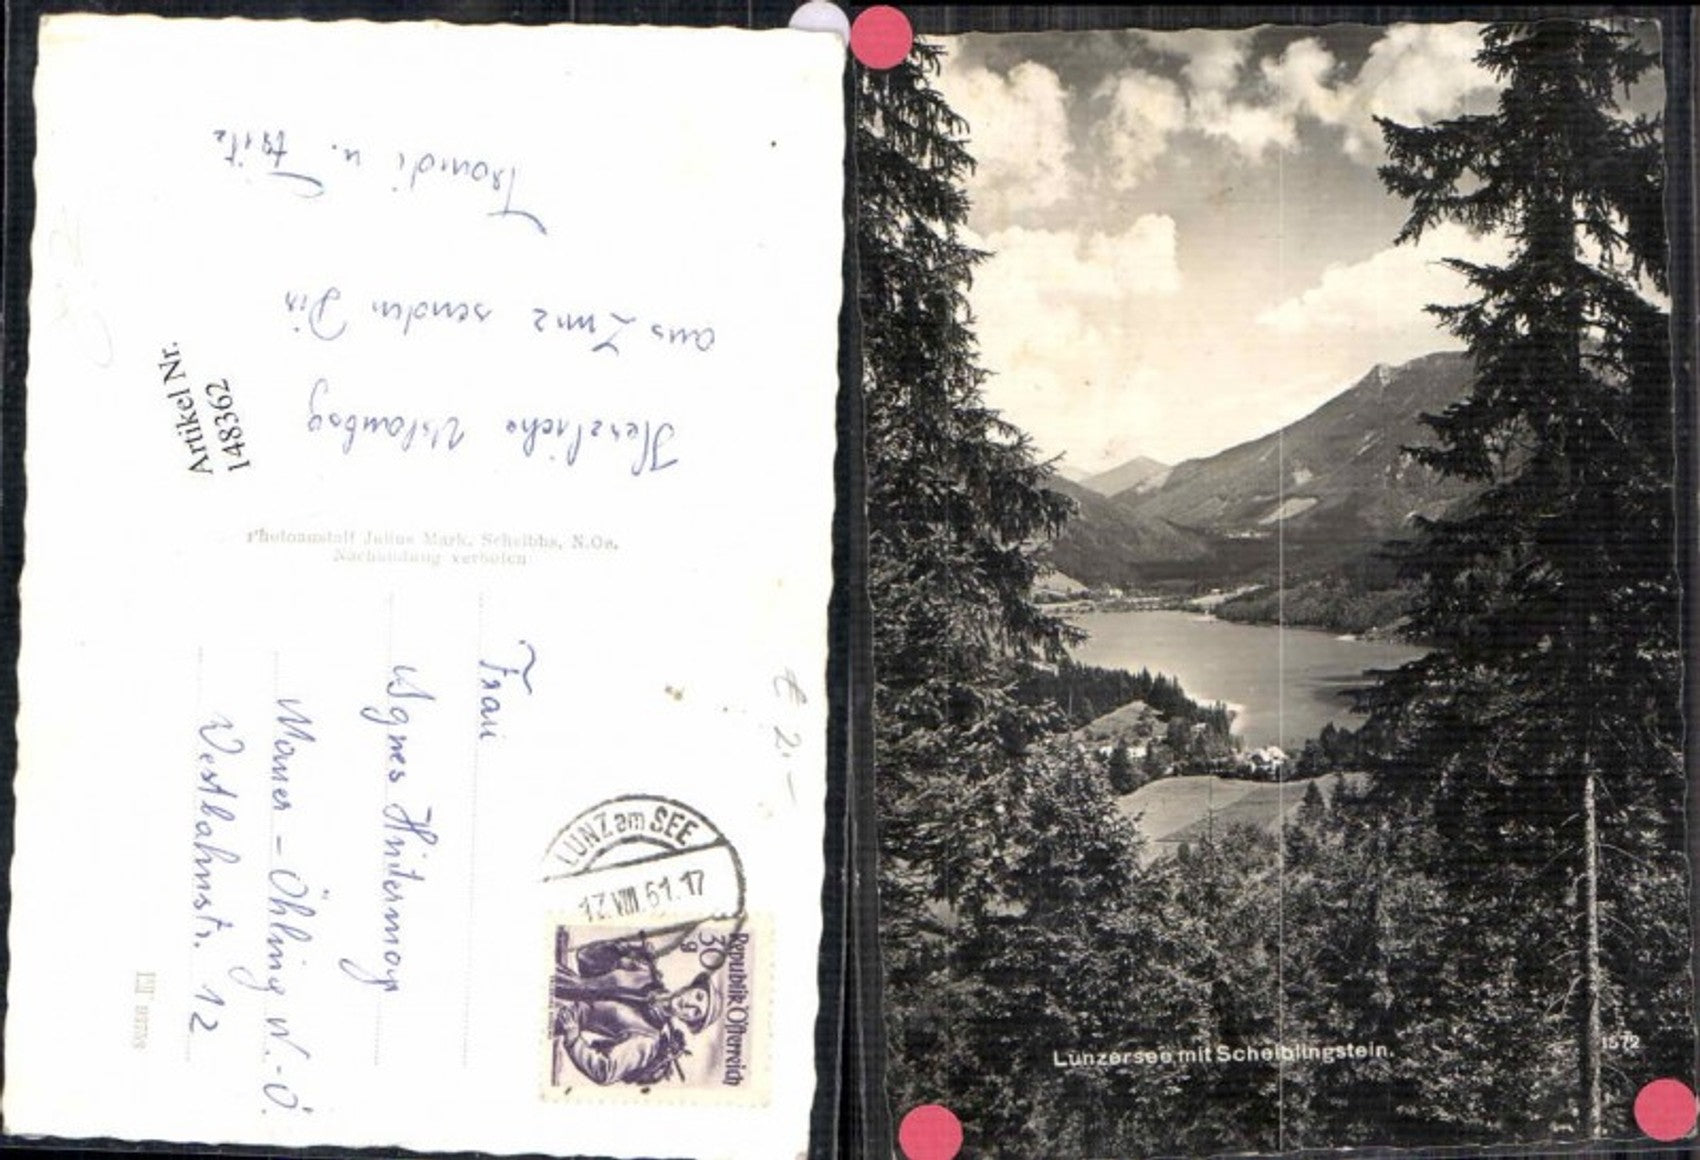 Herzliche Urlaubsg
aus Lunz senden Dir
Traudi u. Fritz
Artikel Nr.
1483362
Photoanstalt Julius Mark, Scheibbs, N.Oe.
Nachbildung verboten
Frau
Agnes Hintermayr
Mauer - Öhling N.-Ö.
Westbahnstr. 12
€ 2,-
LUNZ am SEE
17.VIII.61.17
Republik Österreich
30 g
Lunzersee mit Scheiblingstein.
1572